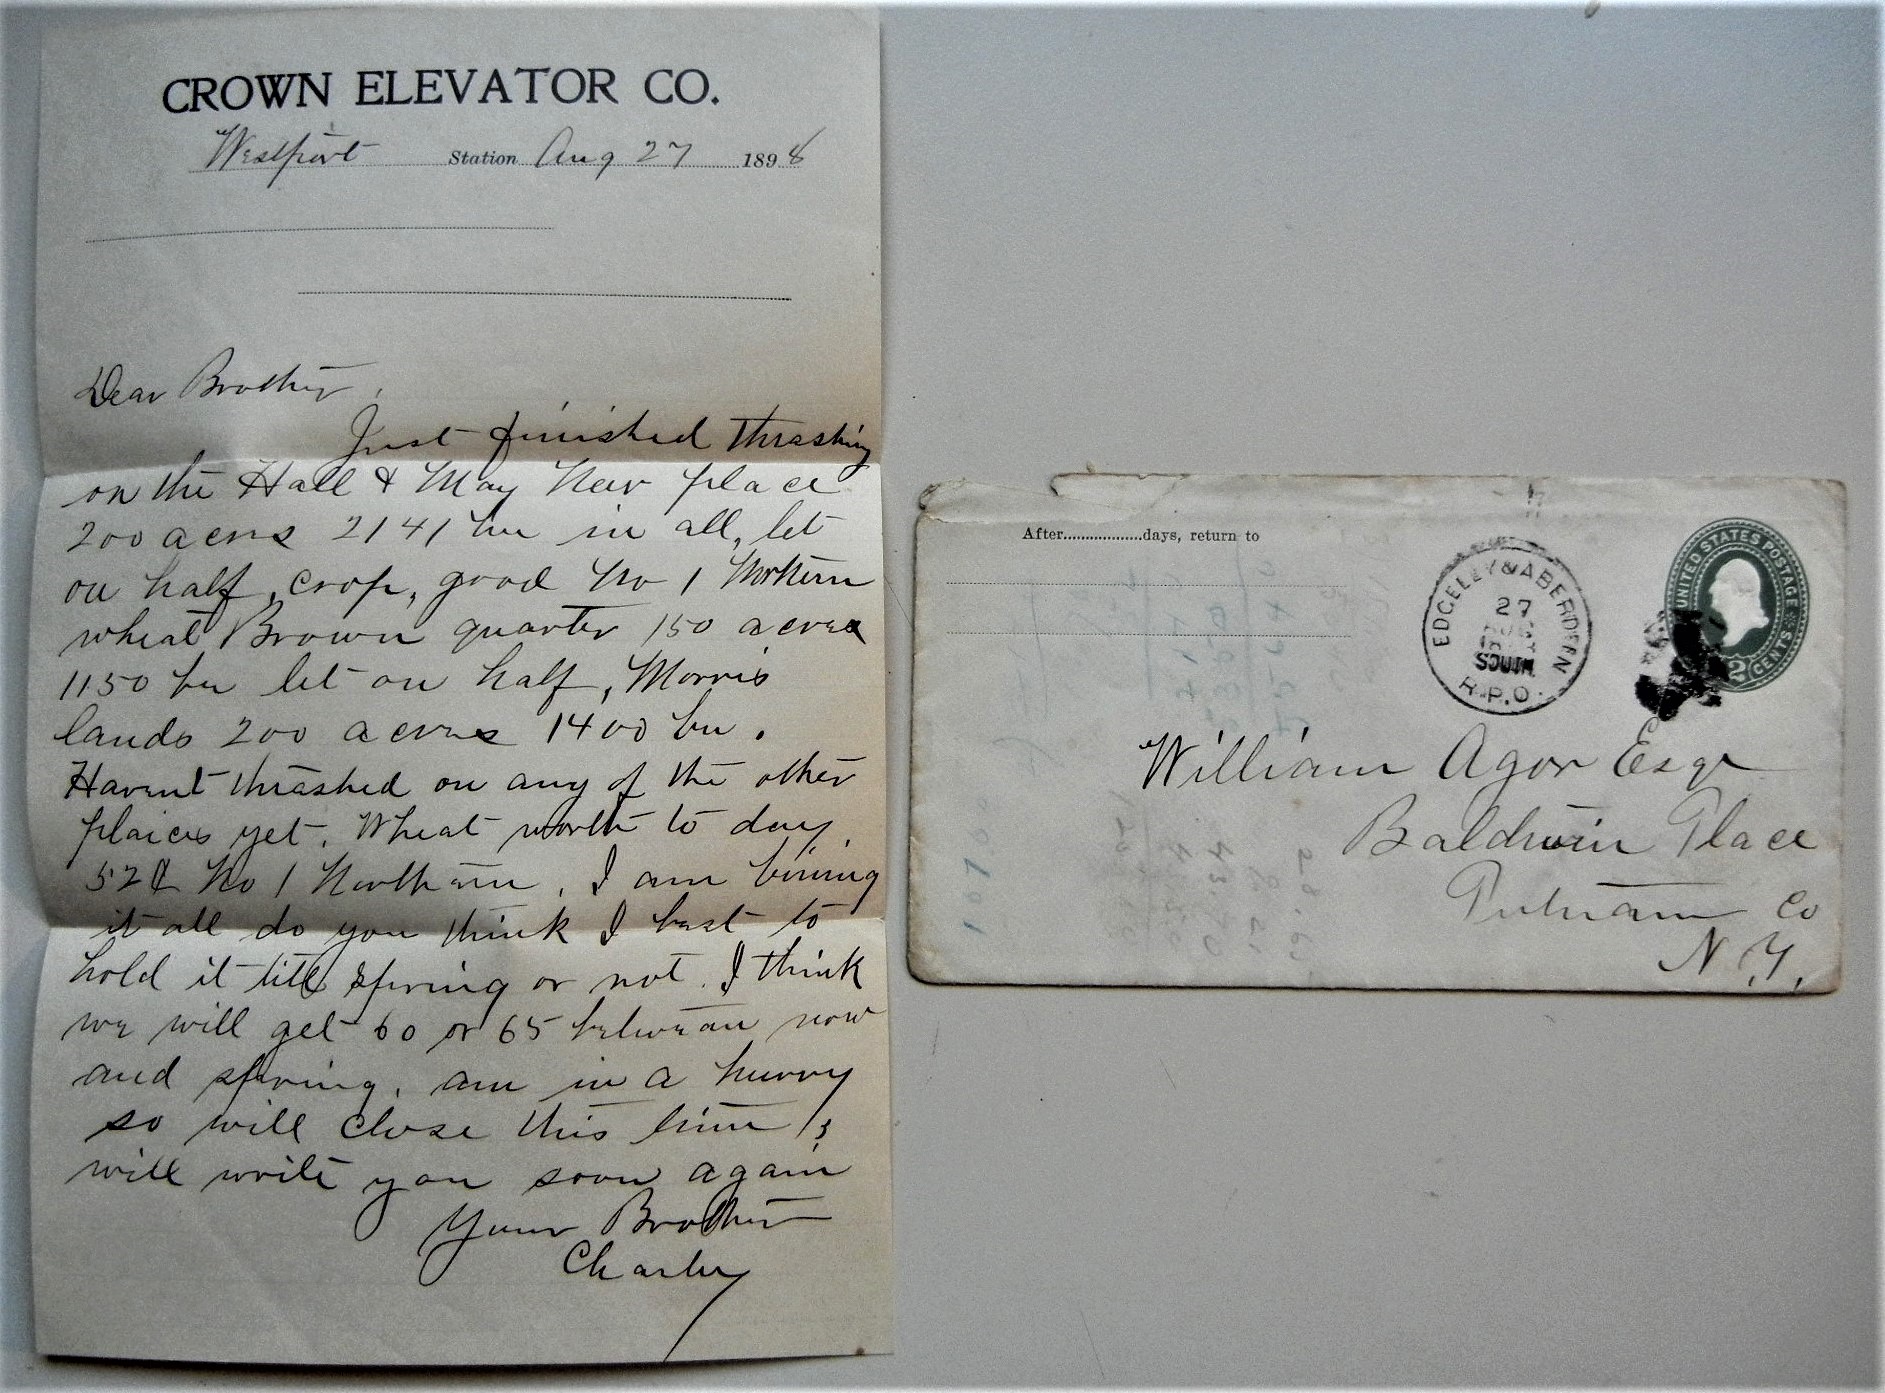 CROWN ELEVATOR CO.
Westport Station Aug 27 1898
Dear Brother,
Just finished thrashing
on the Hall & May New place
200 acres 2141 bu in all, let
on half, crop, good No 1 Northern
wheat Brown quarter 150 acres
1150 bu let on half, Morris
lands 200 acres 1400 bu.
Havent thrashed on any of the other
plaices yet. Wheat worth to day
52¢ No 1 Northern. I am bining
it all do you think I best to
hold it till spring or not. I think
we will get 60 or 65 between now
and spring. am in a hurry
so will close this time &
will write you soon again
Your Brother
Charley
After.................days, return to
EDGELEY & ABERDEEN
27
R.P.O.
UNITED STATES POSTAGE
2 CENTS
William Agor Esqr
Baldwin Place
Putnam Co
N.Y.